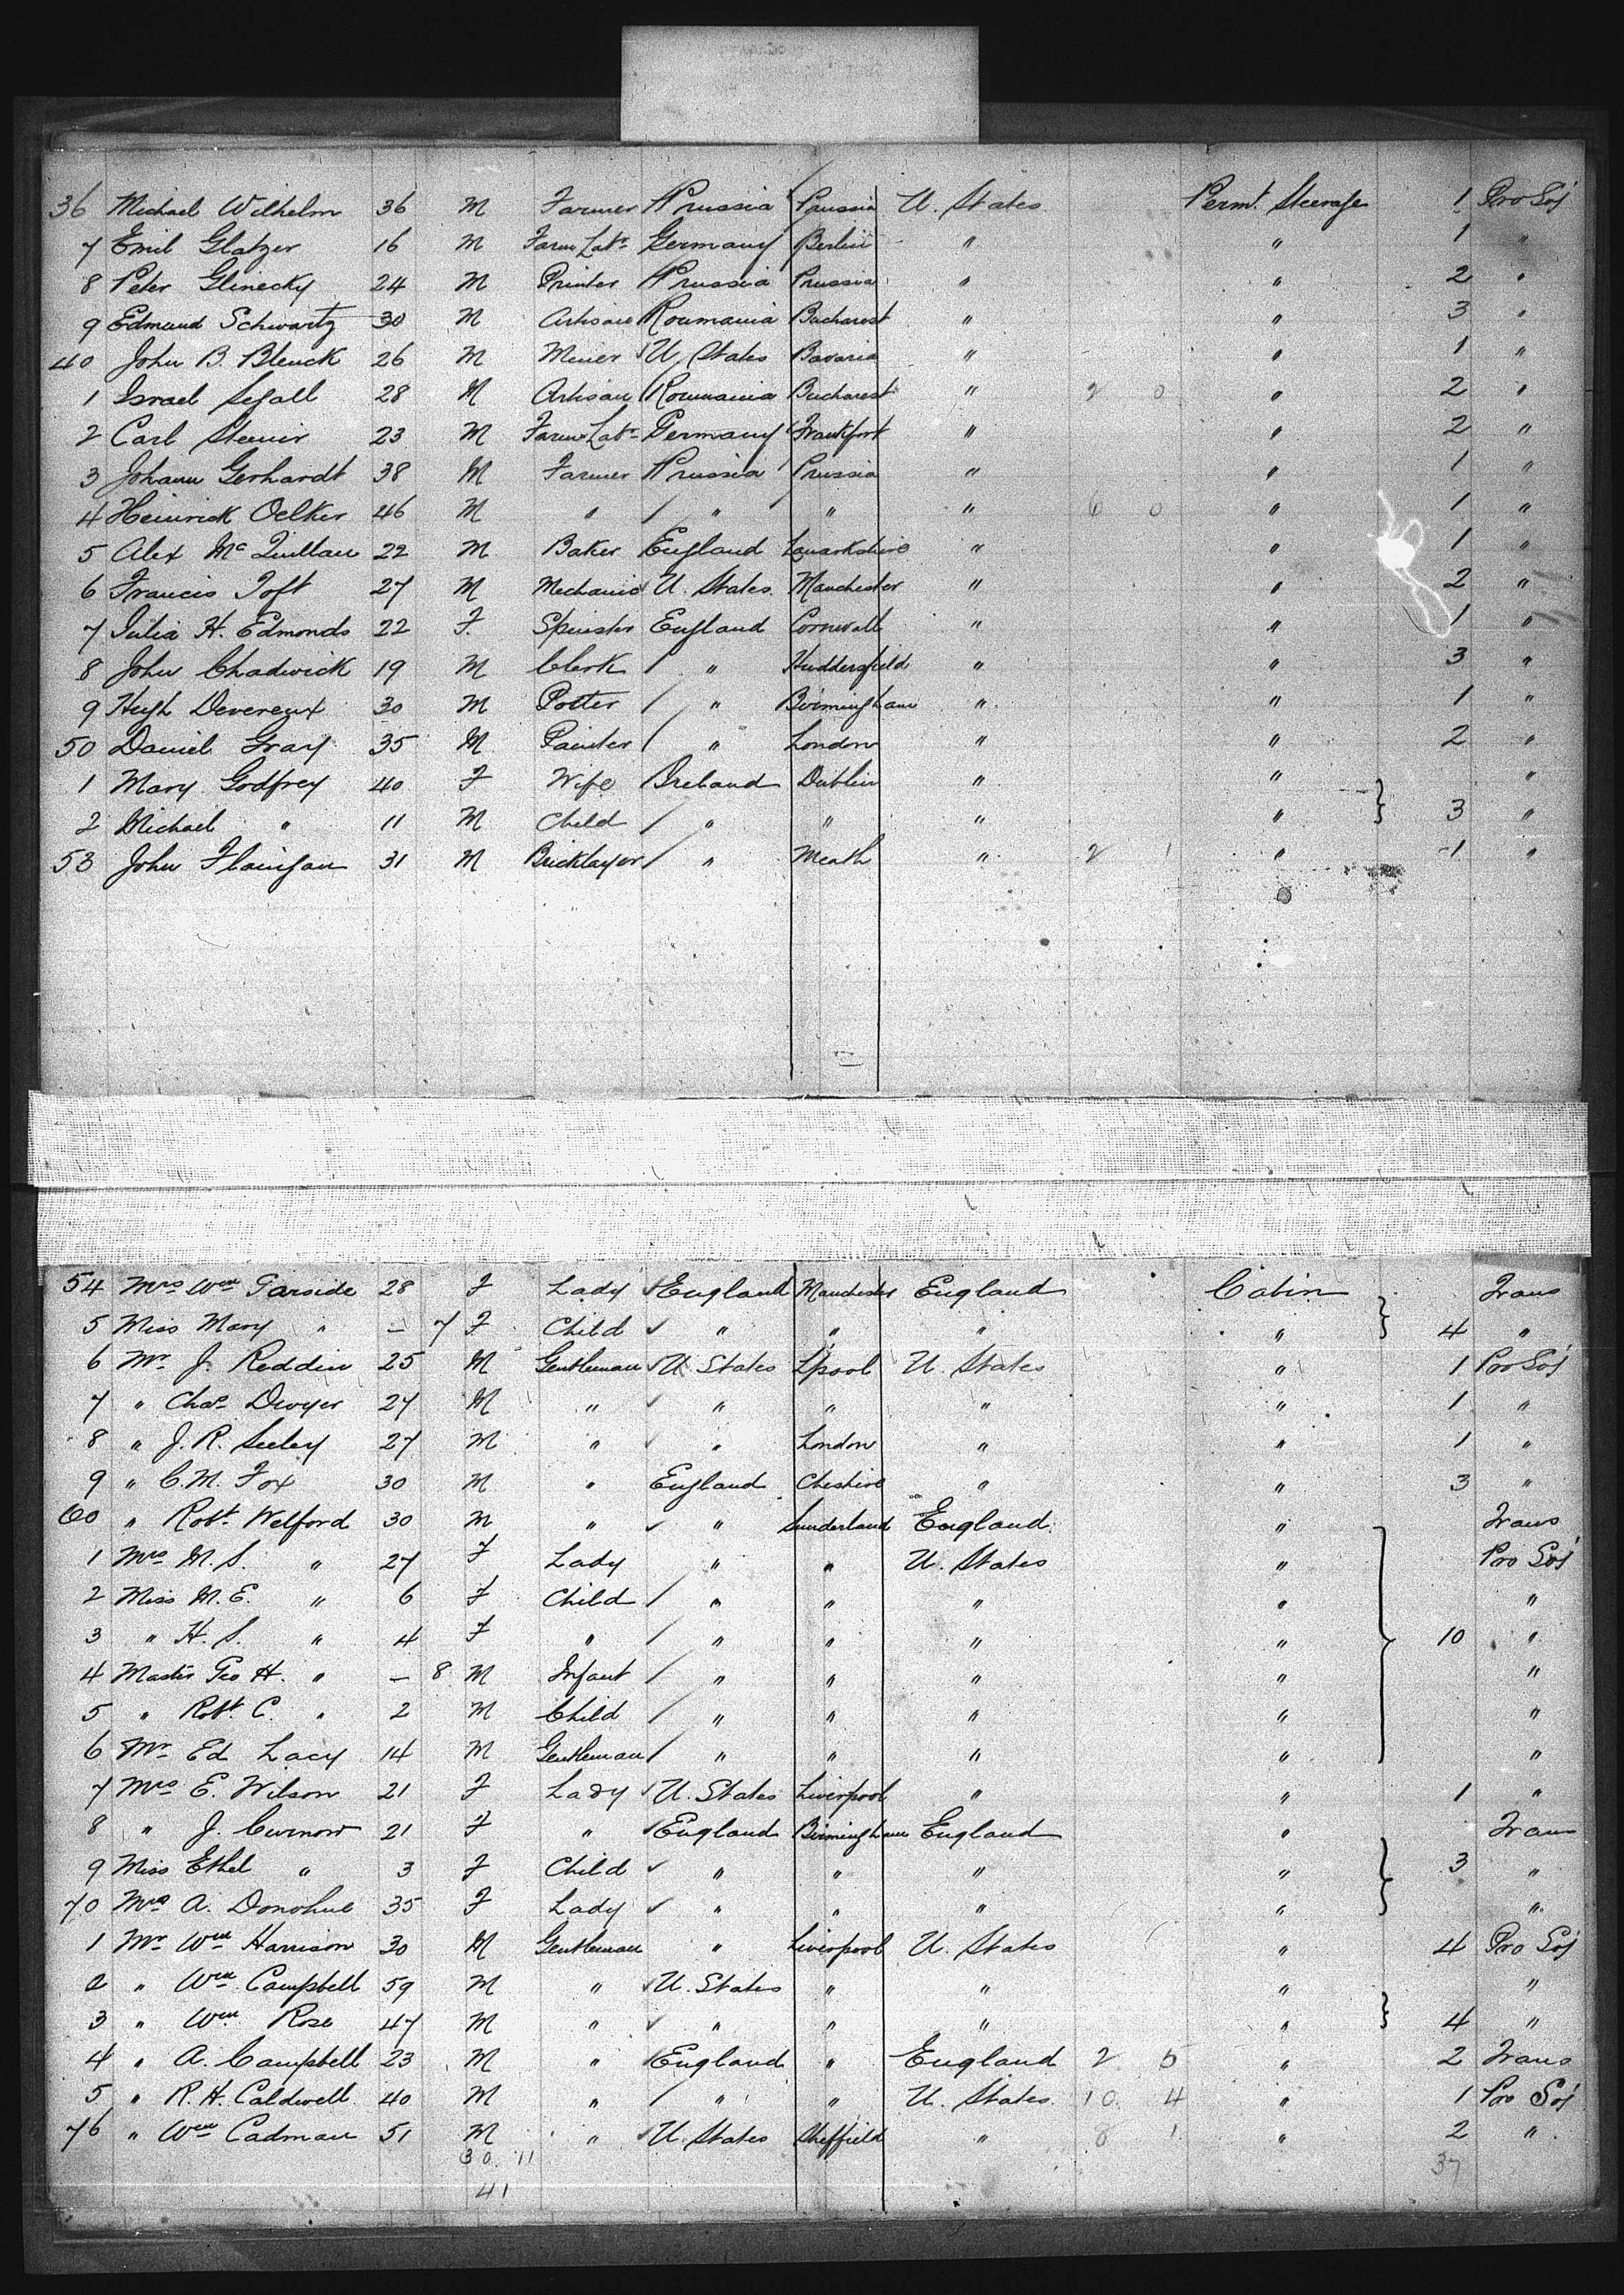 36 Michael Wilhelm 36 M Farmer Prussia Prussia U. States Permt. Steerage 1 Pro Soj
7 Emil Glatzer 16 M Farm Labr Germany Berlin " " 1 "
8 Peter Glinecky 24 M Printer Prussia Prussia " " 2 "
9 Edmund Schwartz 30 M Artisan Roumania Bucharest " " 3 "
40 John B. Blenck 26 M Miner U. States Bavaria " " 1 "
1 Israel Segall 28 M Artisan Roumania Bucharest " 2 0 " 2 "
2 Carl 23 M Farm Labr Germany Frankfort " " 2 "
3 Johann Gerhardt 38 M Farmer Prussia Prussia " " 1 "
4 Heinrick Oelker 46 M " " " " 6 0 " 1 "
5 Alex McQuillan 22 M Baker England Lanarkshire " " 1 "
6 Francis Toft 27 M Mechanic U. States. Manchester " " 2 "
7 Julia H. Edmonds 22 F. Spinster England Cornwall " " 1 "
8 John Chadwick 19 M Clerk " Huddersfield " " 3 "
9 Hugh Devereux 30 M Potter " Birmingham " " 1 "
50 Daniel Gray 35 M Painter " London " " 2 "
1 Mary Godfrey 40 F Wife Ireland Dublin " " "
2 Michael " 11 M Child " " " " 3 "
53 John Flanigan 31 M Bricklayer " Meath " 2 1 " 1 "
54 Mrs Wm Garside 28 F Lady England Manchester England Cabin Trans
5 Miss Mary " – 7 F Child " " " " 4 "
6 Mr J. Reddin 25 M Gentleman U. States Lpool U. States " 1 Pro Soj
7 " Chas Dwyer 27 M " " " " " 1 "
8 " J. R. Seeley 27 M " " London " " 1 "
9 " C. M. Fox 30 M " England Cheshire " " 3 "
60 " Robt. Welford 30 M " " Sunderland England " Trans
1 Mrs M. S. " 27 F Lady " " U. States " Pro Soj
2 Miss M. E. " 6 F Child " " " " "
3 " H. S. " 4 F " " " " " 10 "
4 Master Geo H. " – 8 M Infant " " " " "
5 " Robt. C. " 2 M Child " " " " "
6 Mr Ed Lacy 14 M Gentleman " " " " "
7 Mrs E. Wilson 21 F Lady U. States Liverpool " " 1 "
8 " J. Curnow 21 F " England Birmingham England " Trans
9 Miss Ethel " 3 F Child " " " " 3 "
70 Mrs A. Donohue 35 F Lady " " " " "
1 Mr Wm Harrison 30 M Gentleman " Liverpool U. States " 4 Pro Soj
2 " Wm Campbell 59 M " U. States " " " "
3 " Wm Rose 47 M " " " " " 4 "
4 " A. Campbell 23 M " England " England 2 5 " 2 Trans
5 " R. H. Caldwell 40 M " " " U. States. 10 4 " 1 Pro Soj
76 " Wm Cadman 51 M " U. States Sheffield " 8 1 " 2 "
30 11 37
41